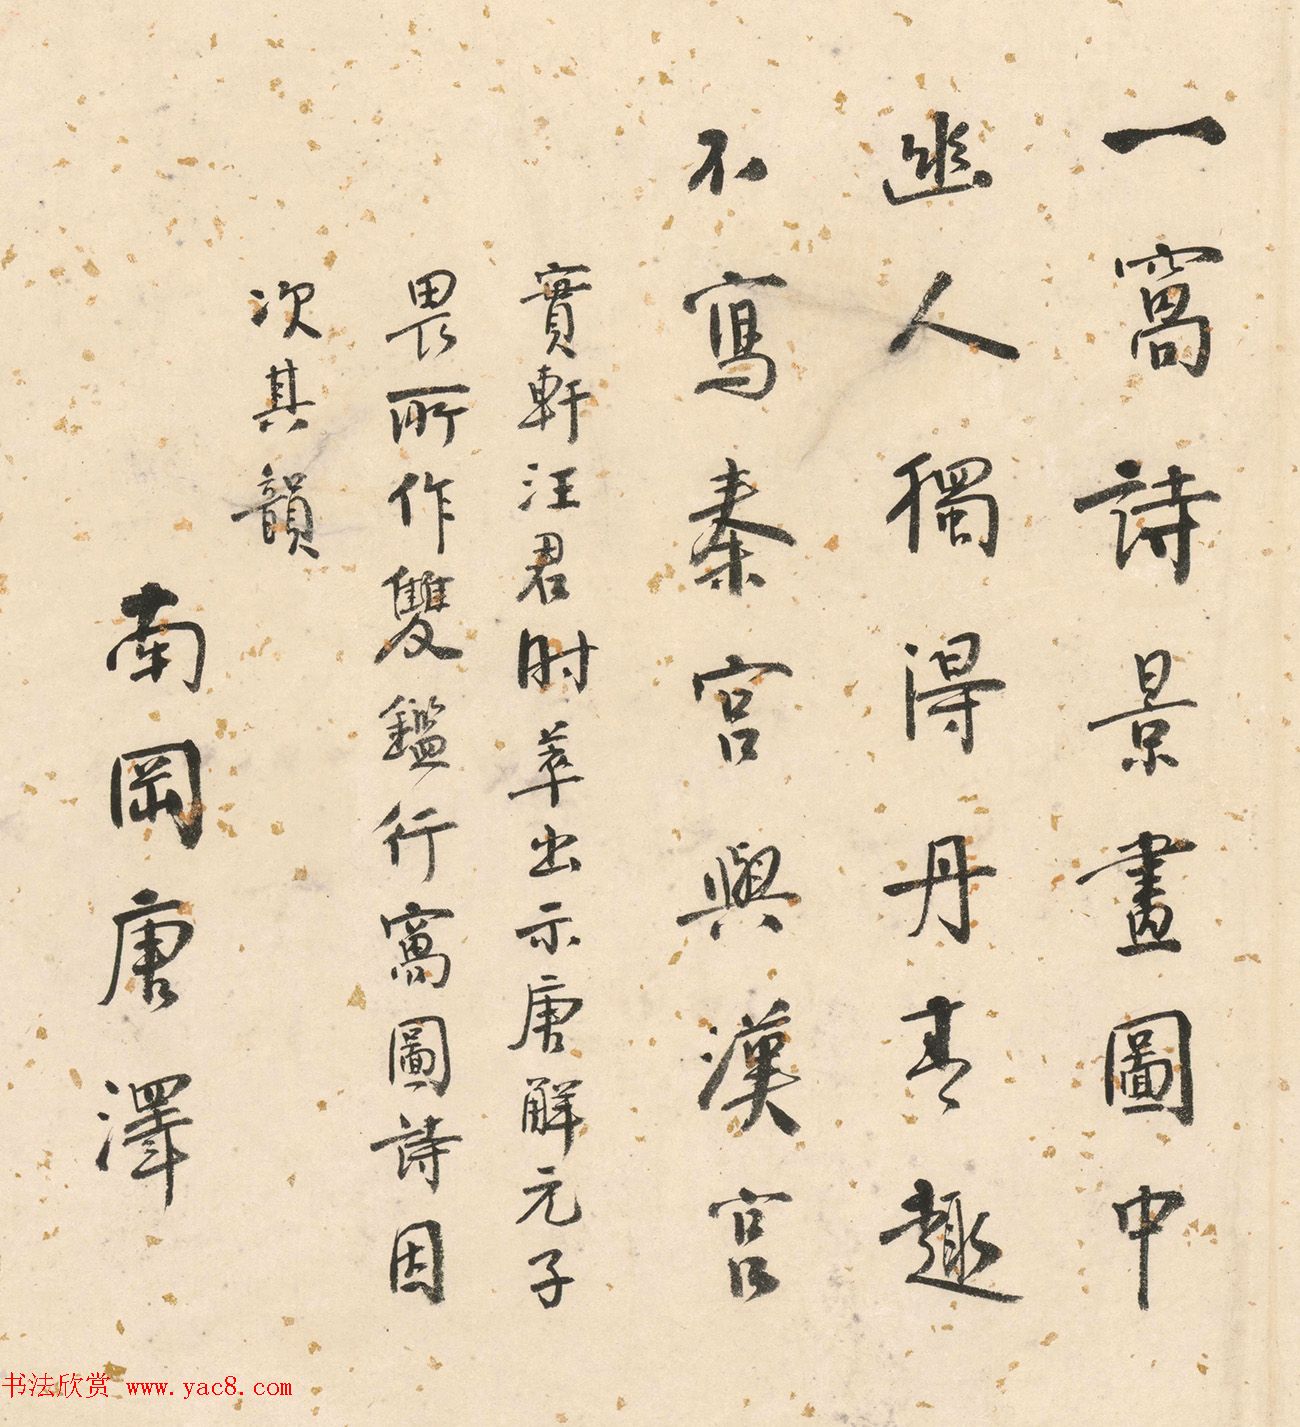 一窩詩景畫圖中
幽人獨得丹青趣
不寫秦宮與漢宮
實軒汪君時萃出示唐解元子
畏所作雙鑑行窩圖詩因
次其韻
南岡唐澤
书法欣赏 www.yac8.com